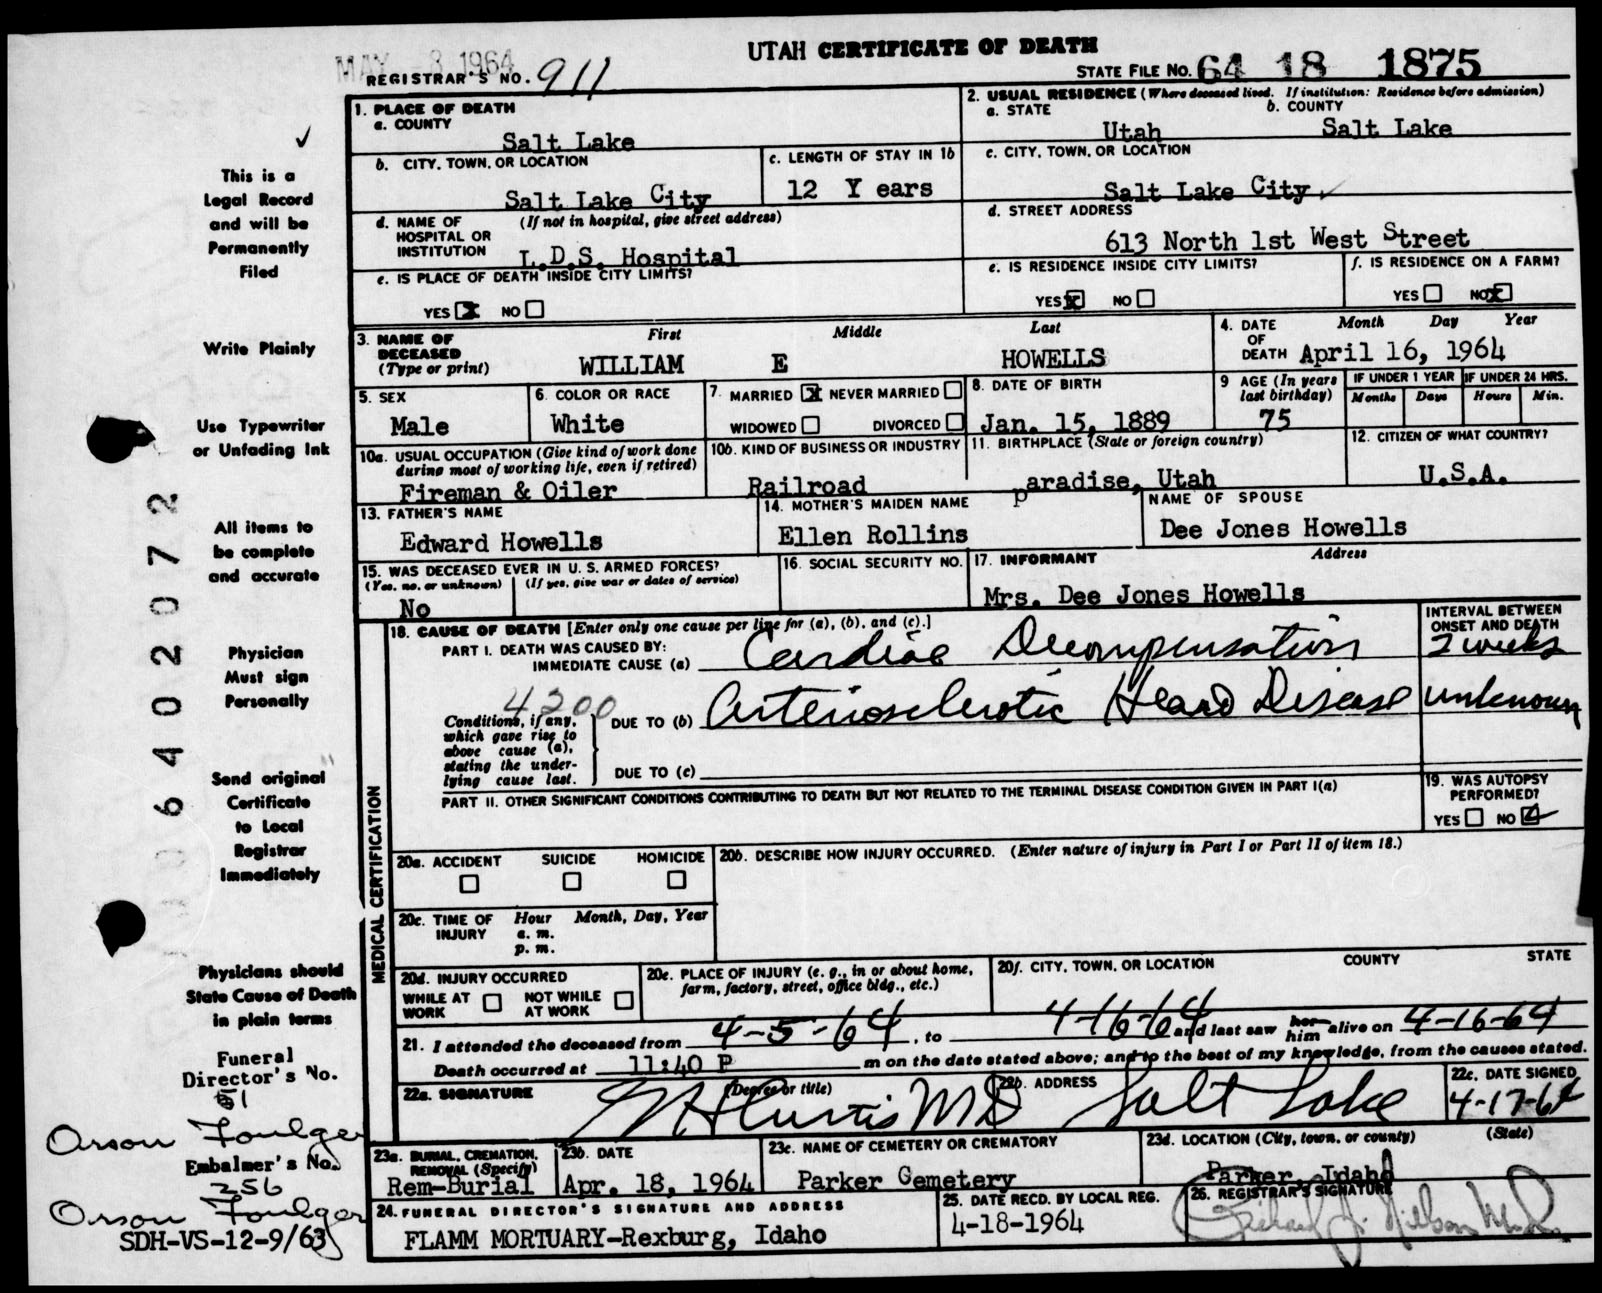 MAY - 8 1964
UTAH CERTIFICATE OF DEATH
REGISTRAR'S NO. 911
STATE FILE NO. 64 18 1875
1. PLACE OF DEATH
a. COUNTY
Salt Lake
2. USUAL RESIDENCE (Where deceased lived. If institution: Residence before admission)
a. STATE b. COUNTY
Utah Salt Lake
b. CITY, TOWN, OR LOCATION
Salt Lake City
c. LENGTH OF STAY IN 1b
12 Y ears
c. CITY, TOWN, OR LOCATION
Salt Lake City
d. NAME OF HOSPITAL OR INSTITUTION (If not in hospital, give street address)
L.D.S. Hospital
d. STREET ADDRESS
613 North 1st West Street
e. IS PLACE OF DEATH INSIDE CITY LIMITS?
YES X NO
e. IS RESIDENCE INSIDE CITY LIMITS?
YES X NO
f. IS RESIDENCE ON A FARM?
YES NO X
3. NAME OF DECEASED (Type or print)
First Middle Last
WILLIAM E HOWELLS
4. DATE OF DEATH Month Day Year
April 16, 1964
5. SEX
Male
6. COLOR OR RACE
White
7. MARRIED X NEVER MARRIED
WIDOWED DIVORCED
8. DATE OF BIRTH
Jan. 15, 1889
9 AGE (In years last birthday)
75
IF UNDER 1 YEAR IF UNDER 24 HRS.
Months Days Hours Min.
10a. USUAL OCCUPATION (Give kind of work done during most of working life, even if retired)
Fireman & Oiler
10b. KIND OF BUSINESS OR INDUSTRY
Railroad
11. BIRTHPLACE (State or foreign country)
Paradise, Utah
12. CITIZEN OF WHAT COUNTRY?
U.S.A.
13. FATHER'S NAME
Edward Howells
14. MOTHER'S MAIDEN NAME
Ellen Rollins
NAME OF SPOUSE
Dee Jones Howells
15. WAS DECEASED EVER IN U. S. ARMED FORCES?
(Yes, no, or unknown) (If yes, give war or dates of service)
No
16. SOCIAL SECURITY NO.
17. INFORMANT Address
Mrs. Dee Jones Howells
MEDICAL CERTIFICATION
18. CAUSE OF DEATH [Enter only one cause per line for (a), (b), and (c).]
INTERVAL BETWEEN ONSET AND DEATH
PART I. DEATH WAS CAUSED BY:
IMMEDIATE CAUSE (a) Cardiac Decompensation 2 weeks
4200
Conditions, if any, which gave rise to above cause (a), stating the underlying cause last.
DUE TO (b) Arteriosclerotic Heart Disease unknown
DUE TO (c)
PART II. OTHER SIGNIFICANT CONDITIONS CONTRIBUTING TO DEATH BUT NOT RELATED TO THE TERMINAL DISEASE CONDITION GIVEN IN PART I(a)
19. WAS AUTOPSY PERFORMED?
YES NO
20a. ACCIDENT SUICIDE HOMICIDE
20b. DESCRIBE HOW INJURY OCCURRED. (Enter nature of injury in Part I or Part II of item 18.)
20c. TIME OF INJURY Hour Month, Day, Year
a. m.
p. m.
20d. INJURY OCCURRED
WHILE AT WORK NOT WHILE AT WORK
20e. PLACE OF INJURY (e. g., in or about home, farm, factory, street, office bldg., etc.)
20f. CITY, TOWN, OR LOCATION COUNTY STATE
21. I attended the deceased from 4-5-64, to 4-16-64 and last saw her him alive on 4-16-64
Death occurred at 11:40 P m on the date stated above; and to the best of my knowledge, from the causes stated.
22a. SIGNATURE (Degree or title)
Curtis MD
22b. ADDRESS
Salt Lake
22c. DATE SIGNED
4-17-64
23a. BURIAL, CREMATION, REMOVAL (Specify)
Rem-Burial
23b. DATE
Apr. 18, 1964
23c. NAME OF CEMETERY OR CREMATORY
Parker Cemetery
23d. LOCATION (City, town, or county) (State)
Parker, Idaho
24. FUNERAL DIRECTOR'S SIGNATURE AND ADDRESS
FLAMM MORTUARY-Rexburg, Idaho
25. DATE RECD. BY LOCAL REG.
4-18-1964
26. REGISTRAR'S SIGNATURE
This is a
Legal Record
and will be
Permanently
Filed
Write Plainly
Use Typewriter
or Unfading Ink
All items to
be complete
and accurate
Physician
Must sign
Personally
Send original
Certificate
to Local
Registrar
Immediately
Physicians should
State Cause of Death
in plain terms
Funeral
Director's No.
51
Orson Foulger
Embalmer's No.
256
Orson Foulger
SDH-VS-12-9/63